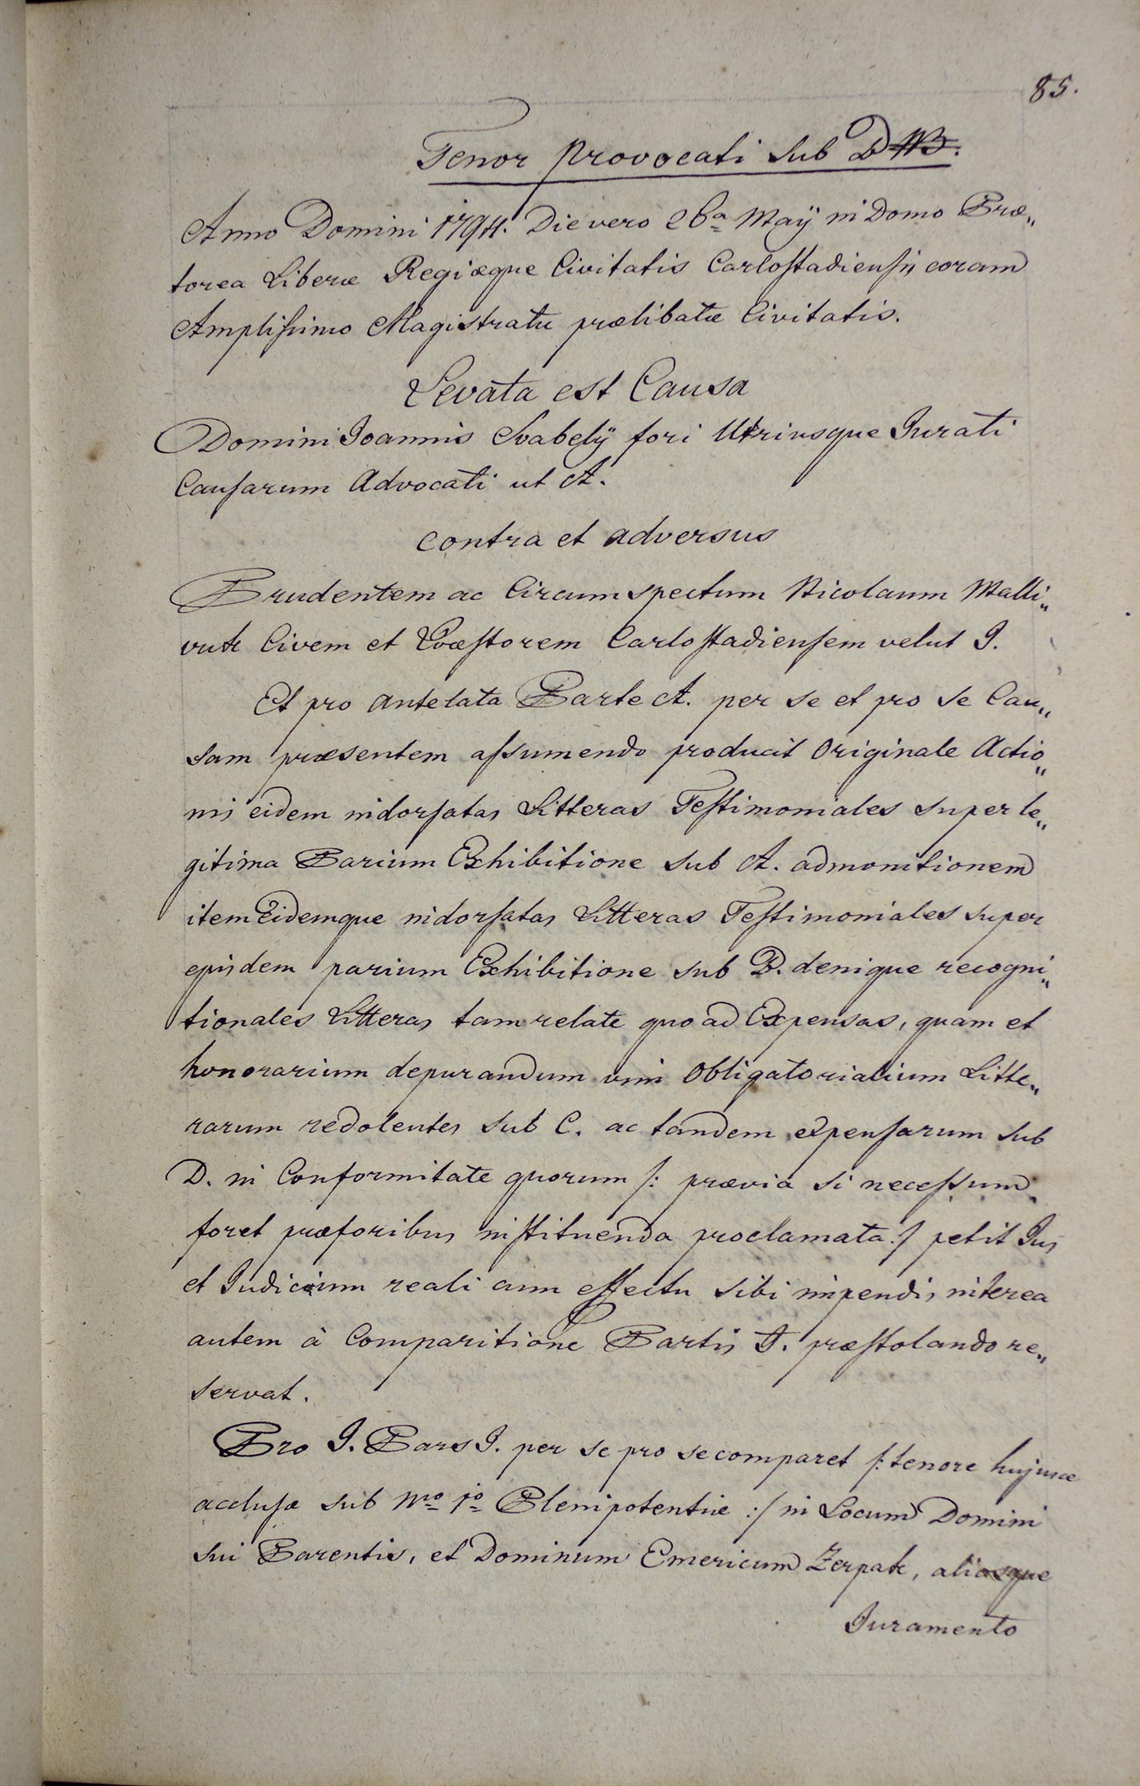 85.
Tenor Provocati sub D
Anno Domini 1794. Die vero 26a Maÿ in Domo Præ„
torea Liberæ Regiæque Civitatis Carlostadiensis coram
Amplissimo Magistratu prælibatæ Civitatis.
Levata est Causa
Domini Joannis Svabelÿ fori Utriusque Jurati
Causarum Advocati ut A.
contra et adversus
Prudentem ac Circumspectum Nicolaum Malli„
Civem et Quæstorem Carlostadiensem velut I.
Et pro antelata Parte A. per se et pro se Cau„
sam præsentem assumendo producit Originale Actio„
nis eidem indorsatas Litteras Testimoniales super le„
gitima Parium Exhibitione sub A. admonitionem
item Eidemque indorsatas Litteras Testimoniales super
ejusdem parium Exhibitione sub B. denique recogni„
tionales Litteras tam relate quo ad Expensas, quam et
honorarium depurandum vim Obligatorialium Litte„
rarum redolentes sub C. ac tandem expensarum sub
D. in Conformitate quorum /: prævia si necessum
foret præforibus instituenda proclamata :/ petit Jus
et Judicium reali cum effectu sibi impendi, interea
autem à Comparitione Partis I. præstolando re„
servat.
Pro I. Pars I. per se pro se comparet /: tenore hujusce
acclusæ sub Nro 1o Plenipotentiæ :/ in Locum Domini
sui Parentis, et Dominum Emericum Zerpak, aliosque
Juramento